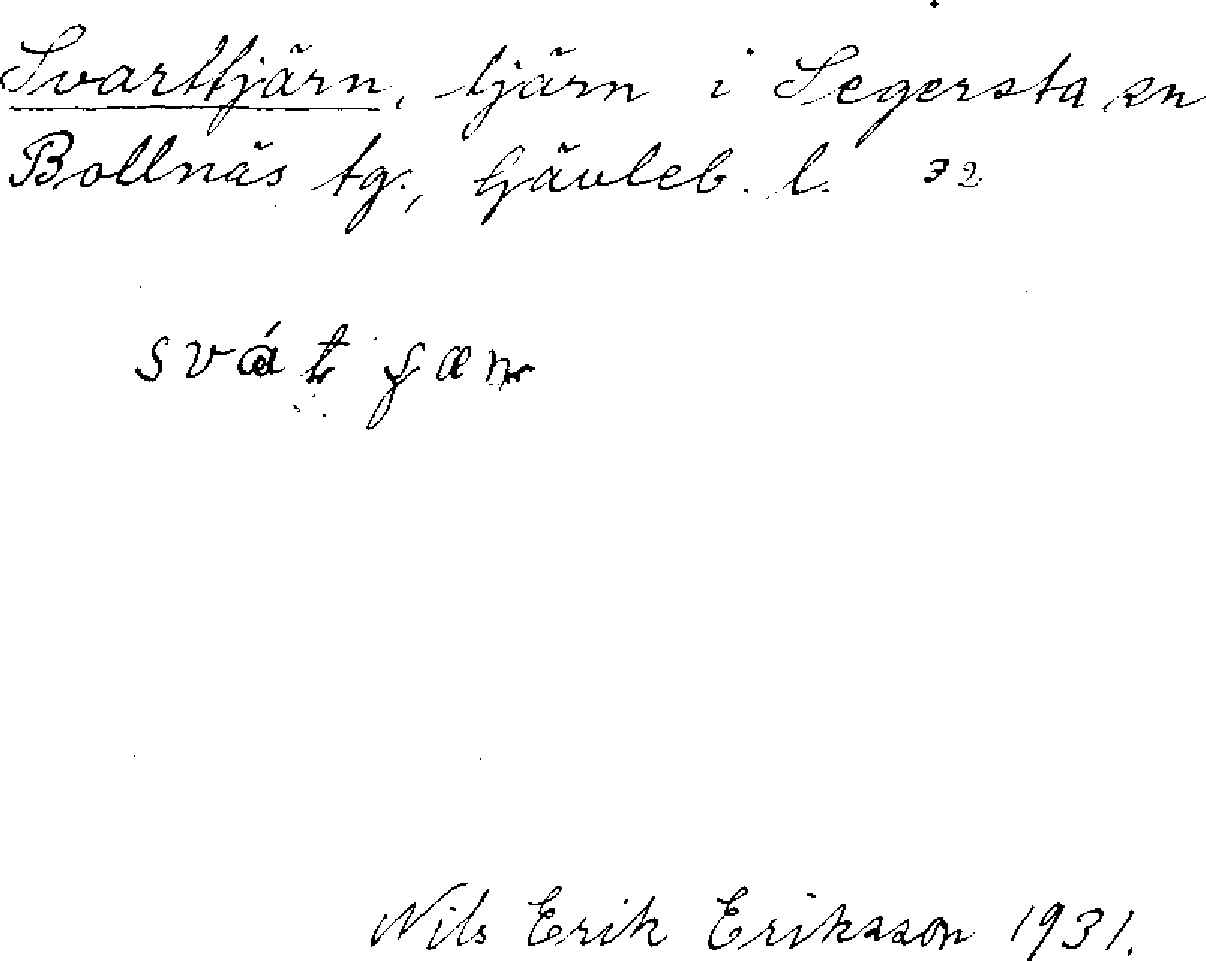 Svarttjärn, tjärn i Segersta sn
Bollnäs tg., Gävleb. l. 32
Nils Erik Eriksson 1931.